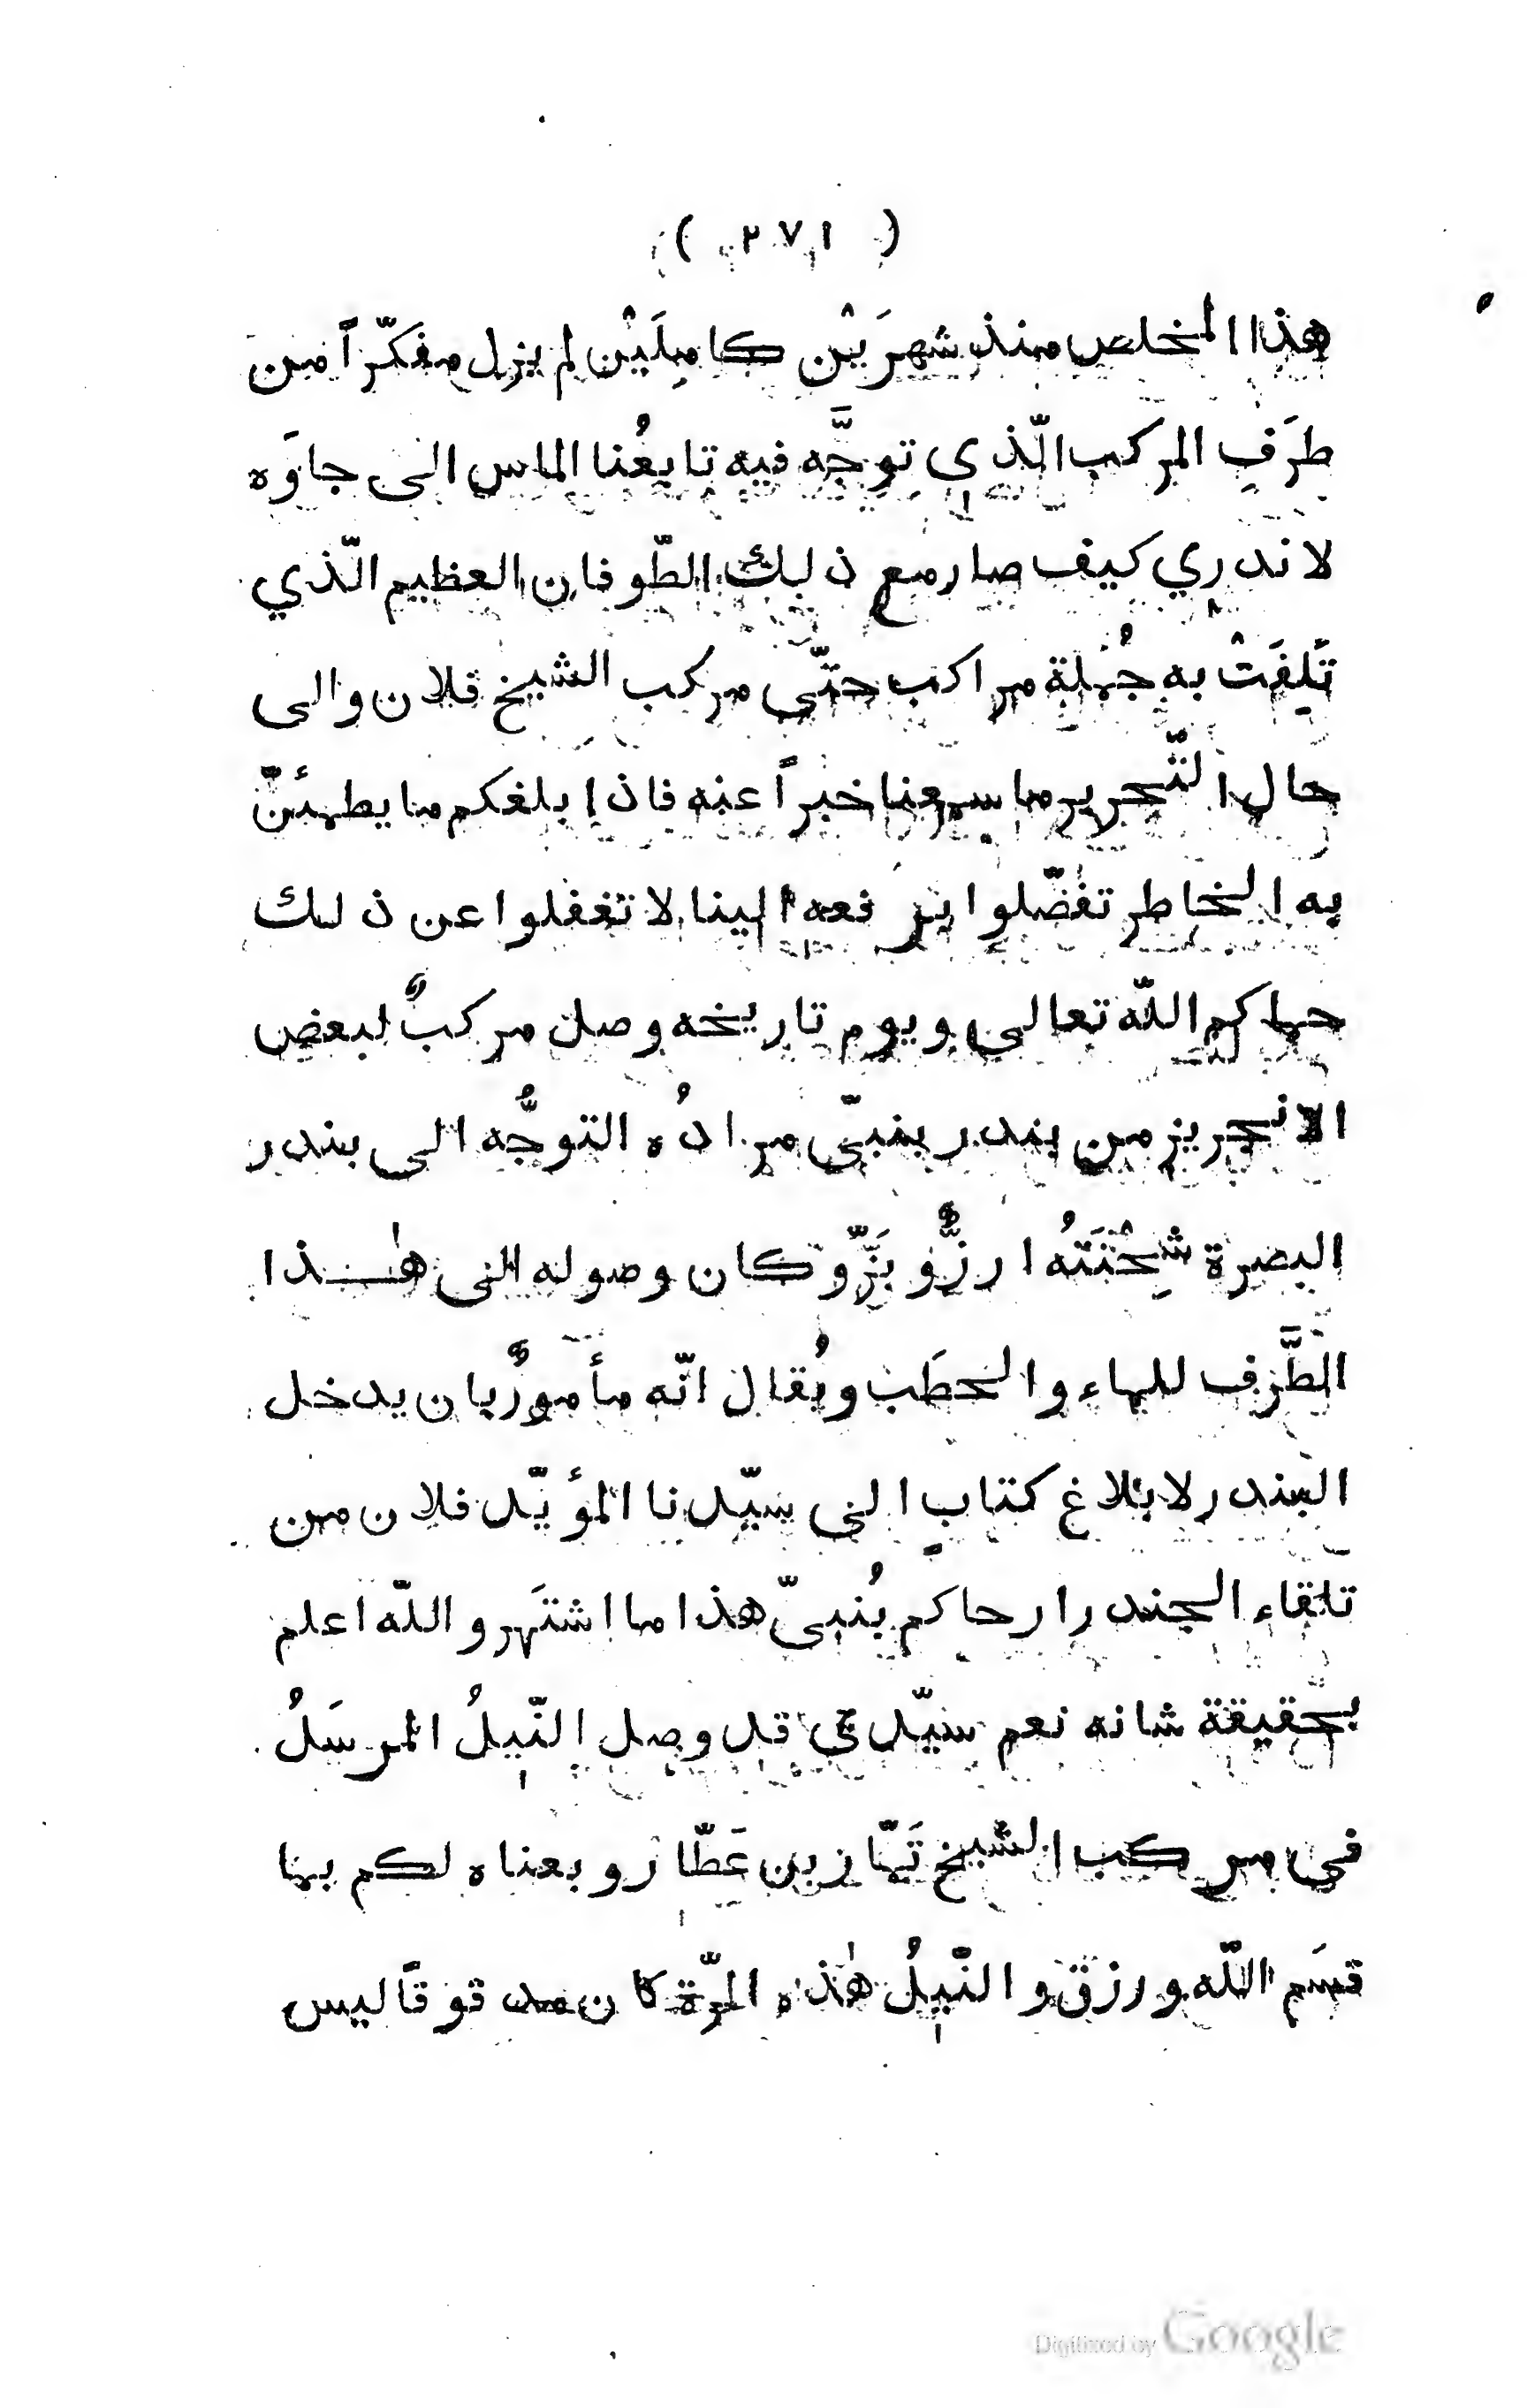 ( ٢٧١ )
هذا المخلص منذ شهرَيْن كامِلَيْن لم يزل مفكّراً من
طرَفِ المركب الّذي توجَّه فيه تابِعُنا الماس الى جاوَه
لا ندري كيف صار مع ذلك الطّوفان العظيم الّذي
تَلِفَتْ به جُملة مراكب حتّى مركب الشيخ فلان والى
حال التّحرير ما سمعنا خبراً عنه فاذا بلغكم ما يطمئنّ
به الخاطر تفضّلوا برفعه الينا لا تغفلوا عن ذلك
حماكم اللّه تعالى ويوم تاريخه وصل مركبٌ لبعض
الانجريز من بندر بنبىّ مرادُه التوجُّه الى بندر
البصرة شِحْنَتَهُ ارزٌّ و بَزّ و كان وصوله الى هٰذا
الطَّرف للماء والحطَب ويُقال انّه مأمورٌ بان يدخل
البندر لابلاغ كتابٍ الى سيّدنا المؤيّد فلان من
تلقاء الجندرار حاكم بُنبىّ هذا ما اشتَهر واللّه اعلم
بحقيقة شانه نعم سيّدي قد وصل النّيلُ المرسَلُ
في مركب الشيخ تَمّاز بن عَطّار وبعناه لكم بما
قسَم اللّه ورزق والنّيلُ هٰذه المرّة كان مدقوقًا ليس
Digitized by Google